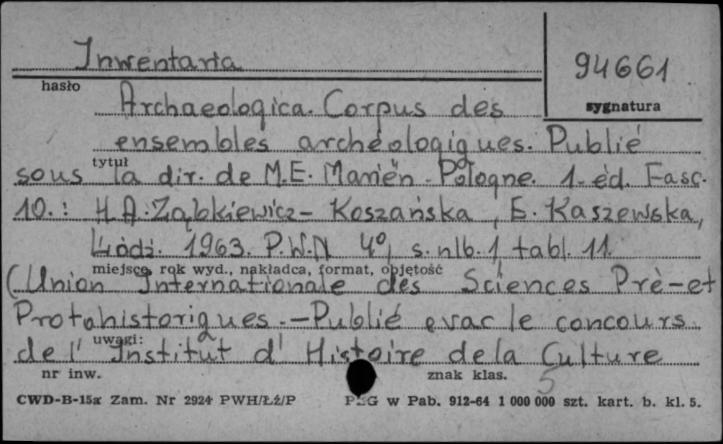 Inwentaria
94661
hasło
sygnatura
Archaeologica. Corpus des
ensembles archéologiques. Publié
tytuł
sous la dir. de M.E. Mariën. Pologne. 1. éd. Fasc.
10.: H.A. Ząbkiewicz-Koszańska, E. Kaszewska,
Łódź. 1963. P.W.N 4°, s. nlb. 1, tabl. 11.
miejsce, rok wyd., nakładca, format, objętość
(Union Internationale des Sciences Prè-et
Protohistoriques. - Publié evac le concours
uwagi:
de l' Institut d' Histoire de la Culture
nr inw.
znak klas.
5
CWD-B-15a Zam. Nr 2924 PWH/Łż/P PZG w Pab. 912-64 1 000 000 szt. kart. b. kl. 5.